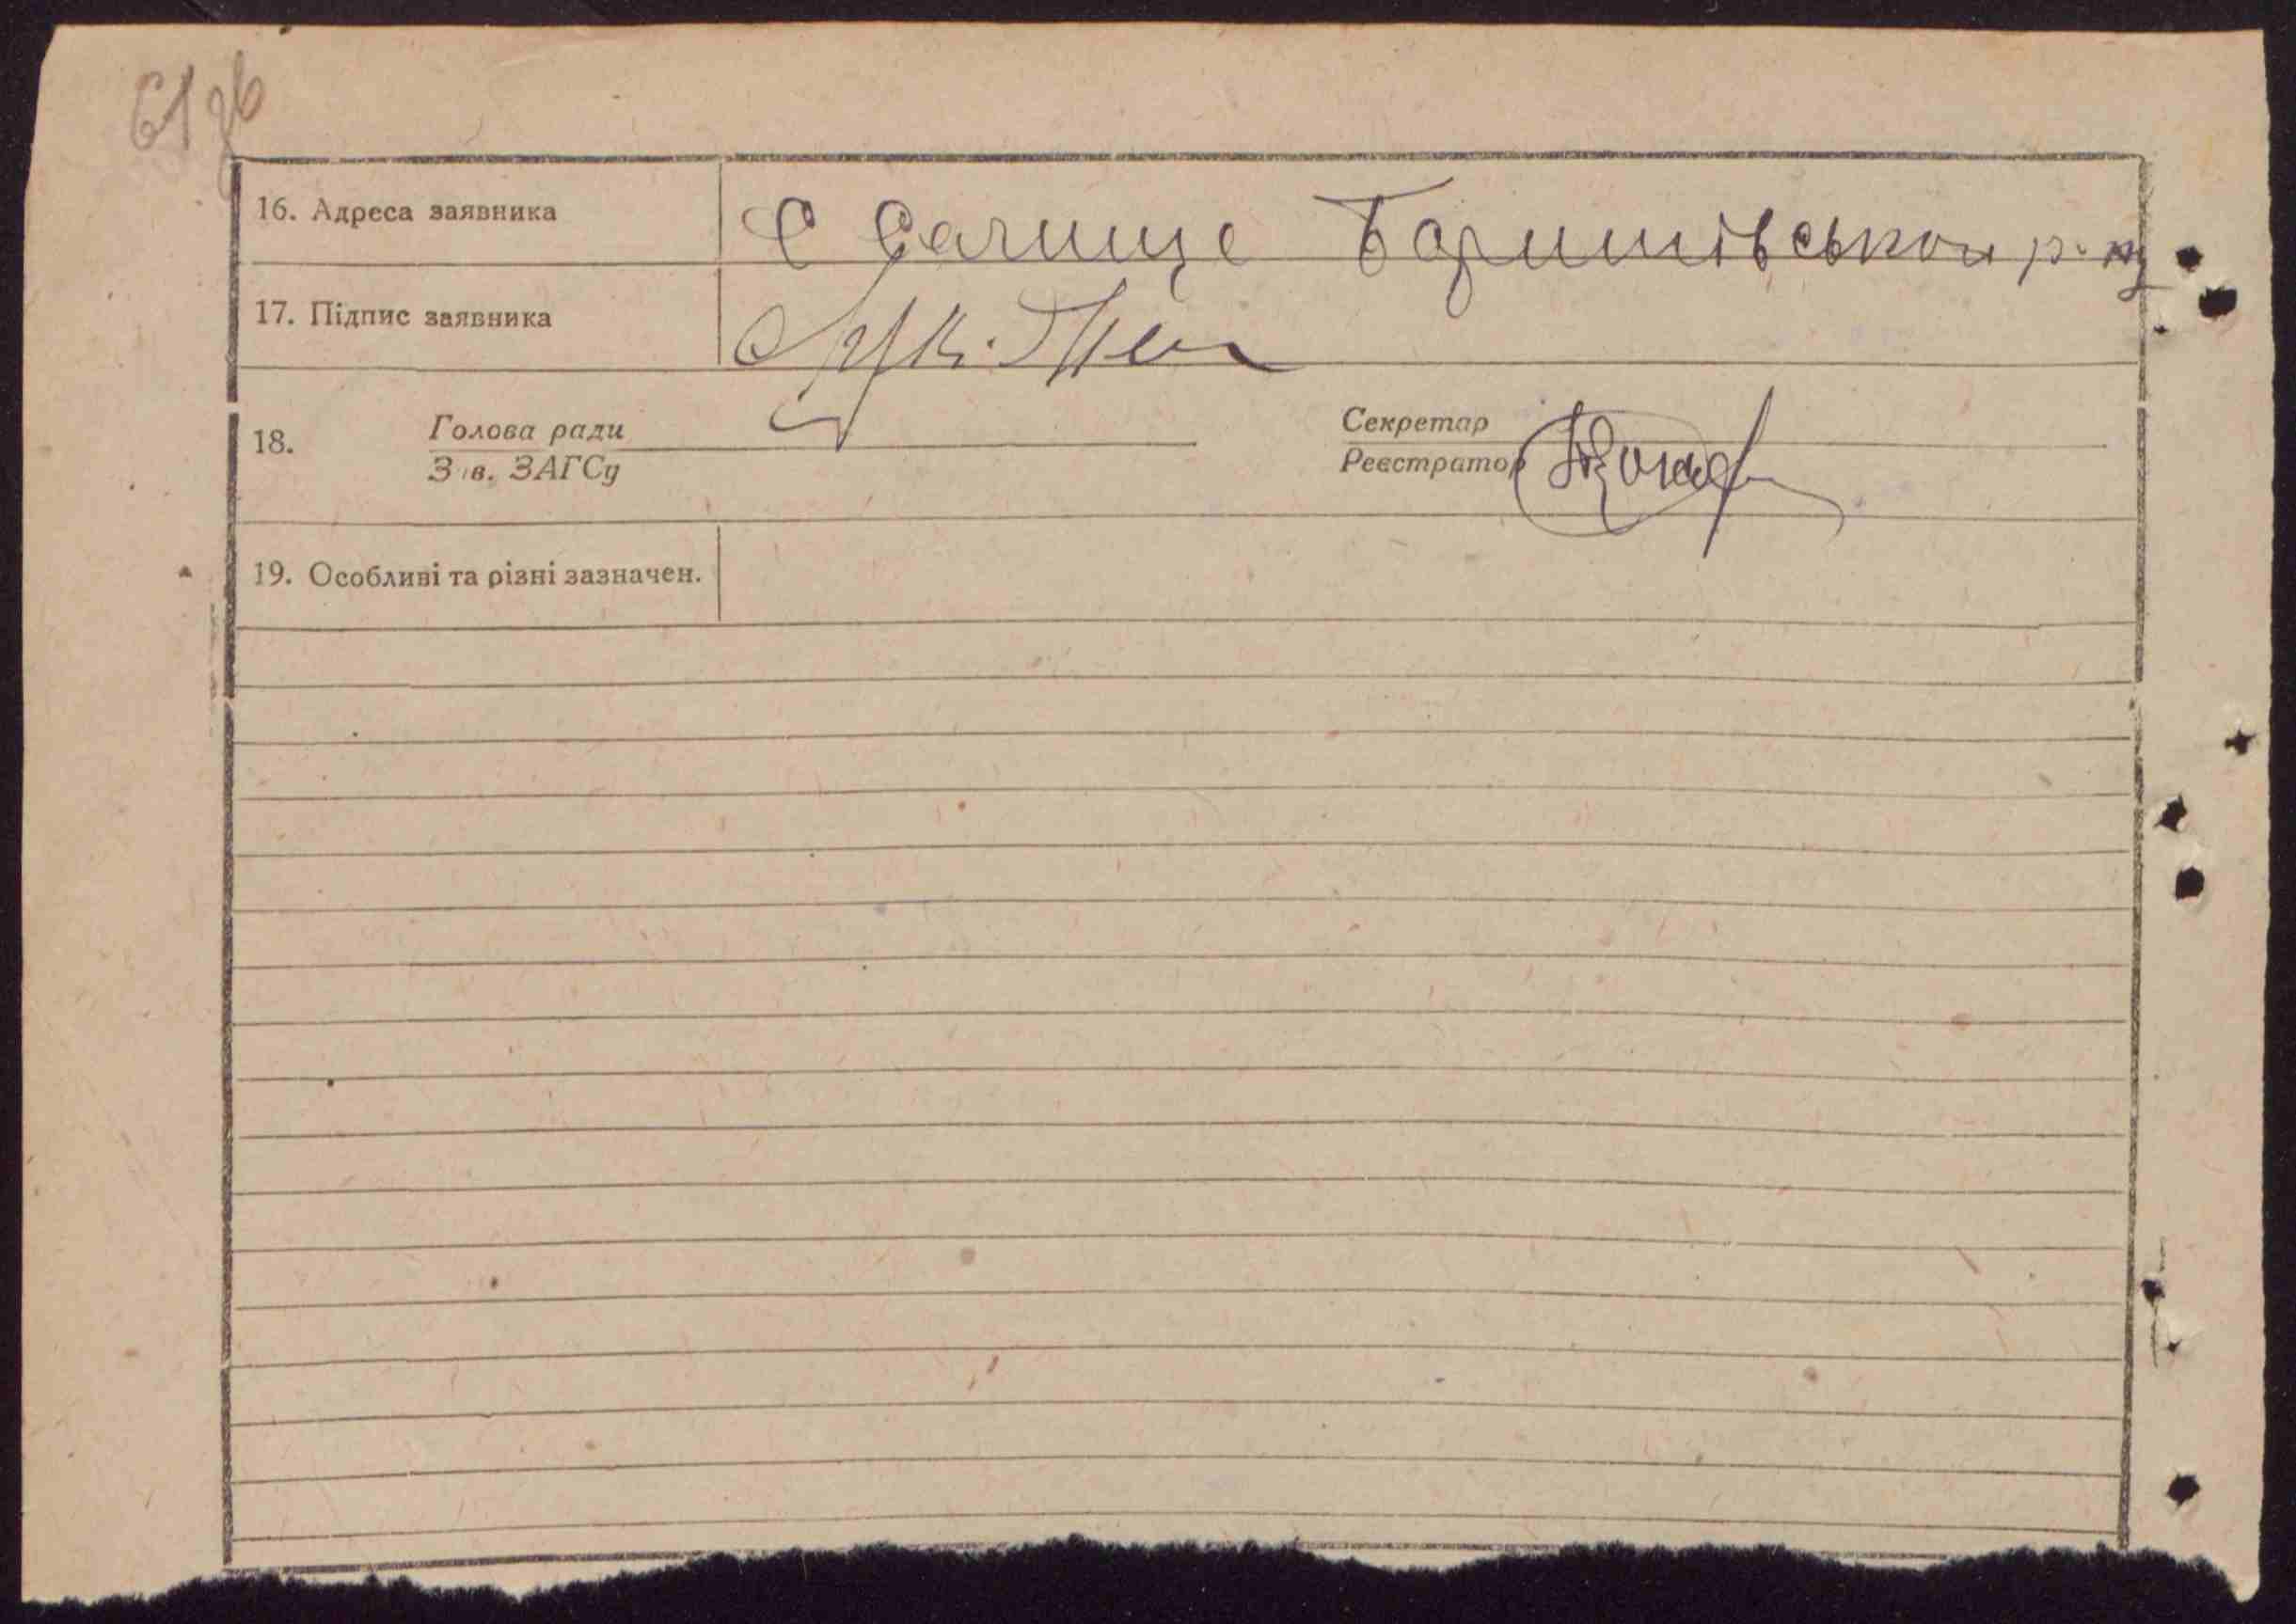 61зв
16. Адреса заявника С Селище Баришівськои р-ну
17. Підпис заявника
18. Голова ради Секретар
Зав. ЗАГСу Реєстратор
19. Особливі та різні зазначен.